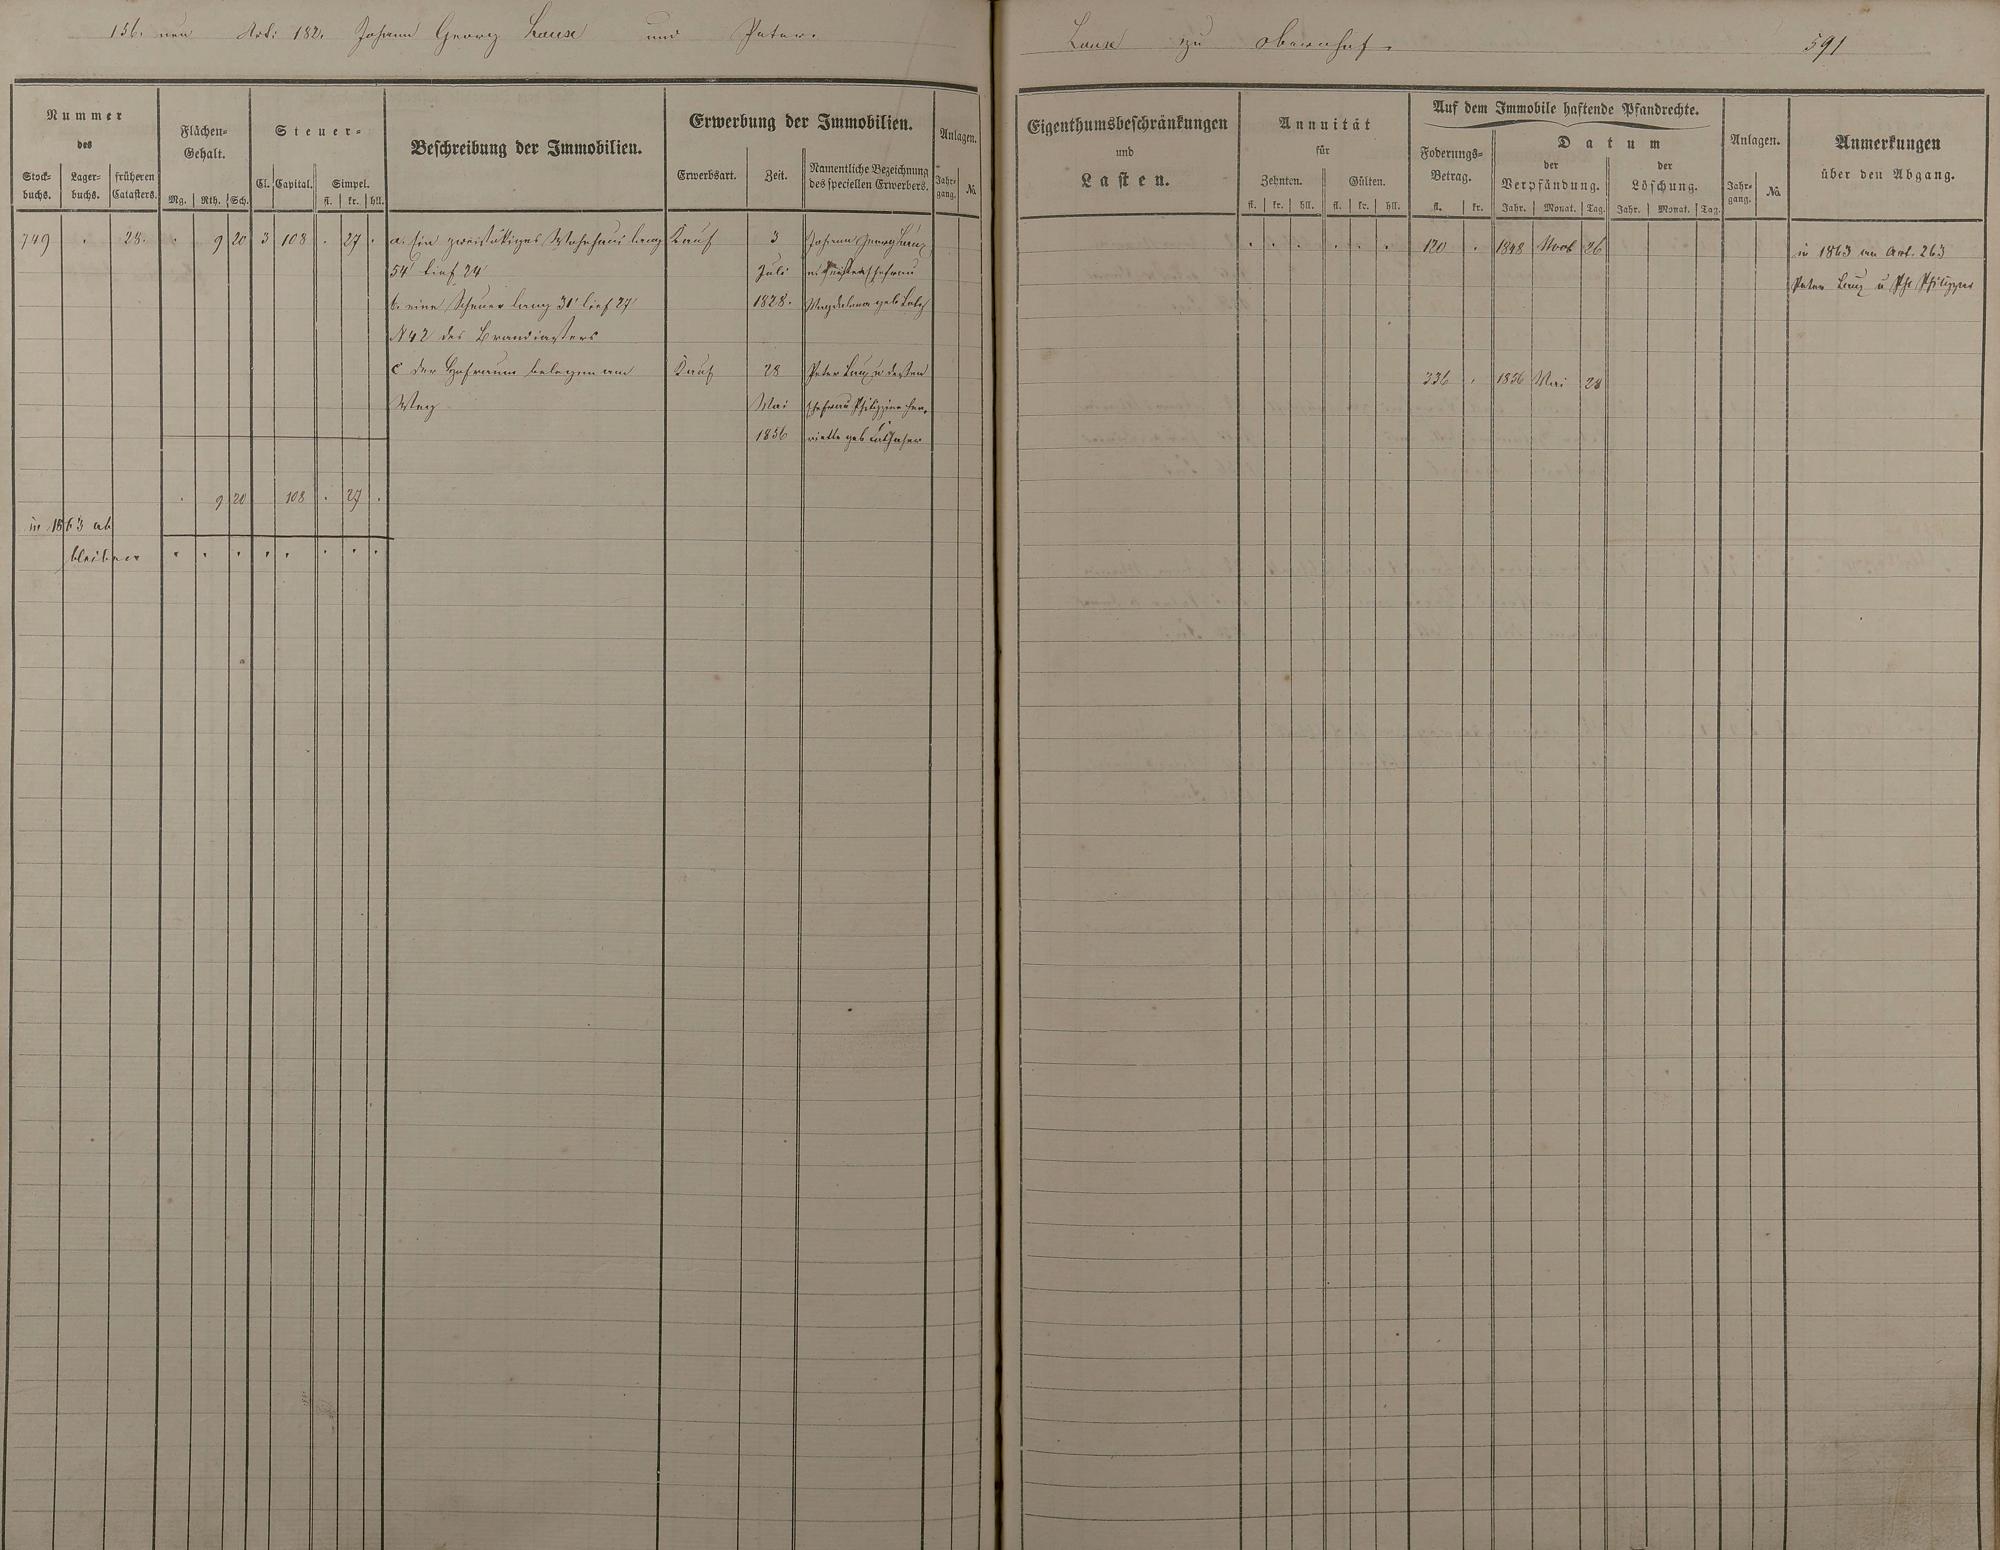 156. neu Art: 182. Johann Georg und Peter.
zu Obernhof. 591
Nummer
des
Stock-
buchs.
Lager-
buchs.
früheren
Catasters.
Flächen-
Gehalt.
Mg. Rth. Sch.
Steuer-
Cl. Capital. Simpel.
fl. kr. hll.
Beschreibung der Immobilien.
Erwerbung der Immobilien.
Erwerbsart. Zeit.
Namentliche Bezeichnung
des speciellen Erwerbers.
Anlagen.
Jahr-
gang. No.
Eigenthumsbeschränkungen
und
Lasten.
Annuität
für
Zehnten. Gülten.
fl. kr. hll. fl. kr. hll.
Auf dem Immobile haftende Pfandrechte.
Foderungs-
Betrag.
fl. kr.
Datum
der
Verpfändung.
Jahr. Monat. Tag.
der
Löschung.
Jahr. Monat. Tag.
Anlagen.
Jahr-
gang. No.
Anmerkungen
über den Abgang.
749 . 28. . 9 20 3 108 . 27 . a. Ein zweistökiges Wohnhaus lang Kauf 3 Johann Georg
54' tief 24' Juli Ehefrau
b. eine Scheuer lang 31' tief 27' 1828. Magdalena geb.
N 42 des
c der Hofraum belegen am Kauf 28 Peter u dessen
Weg Mai Ehefrau Philippine Hen-
1856 riette geb
. 9 20 108 . 27 .
in 1863 ab
bleiben
120 . 1848 26
336 . 1856 Mai 28
in 1863 an Art. 263
Peter u